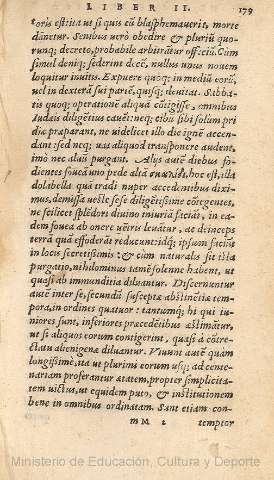 LIBER II. 179
toris estita ut si quis eū blasphemauerit, morte
dānetur. Senibus uerò obedire & pluriū quo-
runq; decreto, probabile arbitrātur officiū. Cum
simul deniq; sederint dece, nullus unus nouem
loquitur inuitis. Expuere quoq; in mediū eorū,
uel in dexterā sui partē, quisq; deuitat. Sabba-
tis quoq; operatione aliqua cōtigisse, omnibus
Iudæis diligētius cauēt: neq; cibū sibi solum pri
die præparant, ne uidelicet illo die ignē accen-
dant: sed neq; uas aliquod transponere audent,
imo nec alui purgant. Alijs autē diebus fo-
dientes foueā uno pede altā hoc est, illa
dolabella quā tradi nuper accedentibus dixi-
mus, demissa ueste sese diligētissime cōtegentes,
ne scilicet splēdori diuino iniuriā faciāt, in ea
dem fouea ab onere uētris leuātur, ac deinceps
terrā quā effoderāt reducunt: idq; ipsum faciūt
in locis secretissimis: & cum naturalis sit ista
purgatio, nihilominus tamē solenne habent, ut
quasi ab immunditia diluantur. Discernuntur
autē inter se, secundū susceptæ abstinētiæ tem-
pora, in ordines quatuor: tantumq; hi qui iu-
niores sunt, inferiores præcedētibus æstimātur,
ut si aliquos eorum contigerint, quasi à cōtre-
ctatu alienigenæ diluantur. Viuunt autē quam
longissimè, ita ut plurimi eorum usq; ad cente-
nariam proferantur ætatem, propter simplicita-
tem uictus, ut equidem puto, & institutionem
bene in omnibus ordinatam. Sunt etiam con-
mM 2 temptor
Ministerio de Educación, Cultura y Deporte